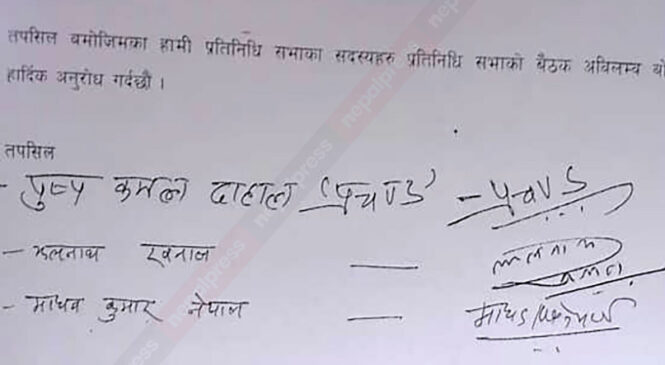 तपसिल बमोजिमका हामी प्रतिनिधि सभाका सदस्यहरु प्रतिनिधि सभाको बैठक अविलम्ब बो
हार्दिक अनुरोध गर्दछौ ।
तपसिल
- पुष्प कमल दाहाल 'प्रचण्ड' - प्रचण्ड
- झलनाथ खनाल —
- माधव कुमार नेपाल —
nepalpress
nepalpress
nepalpress